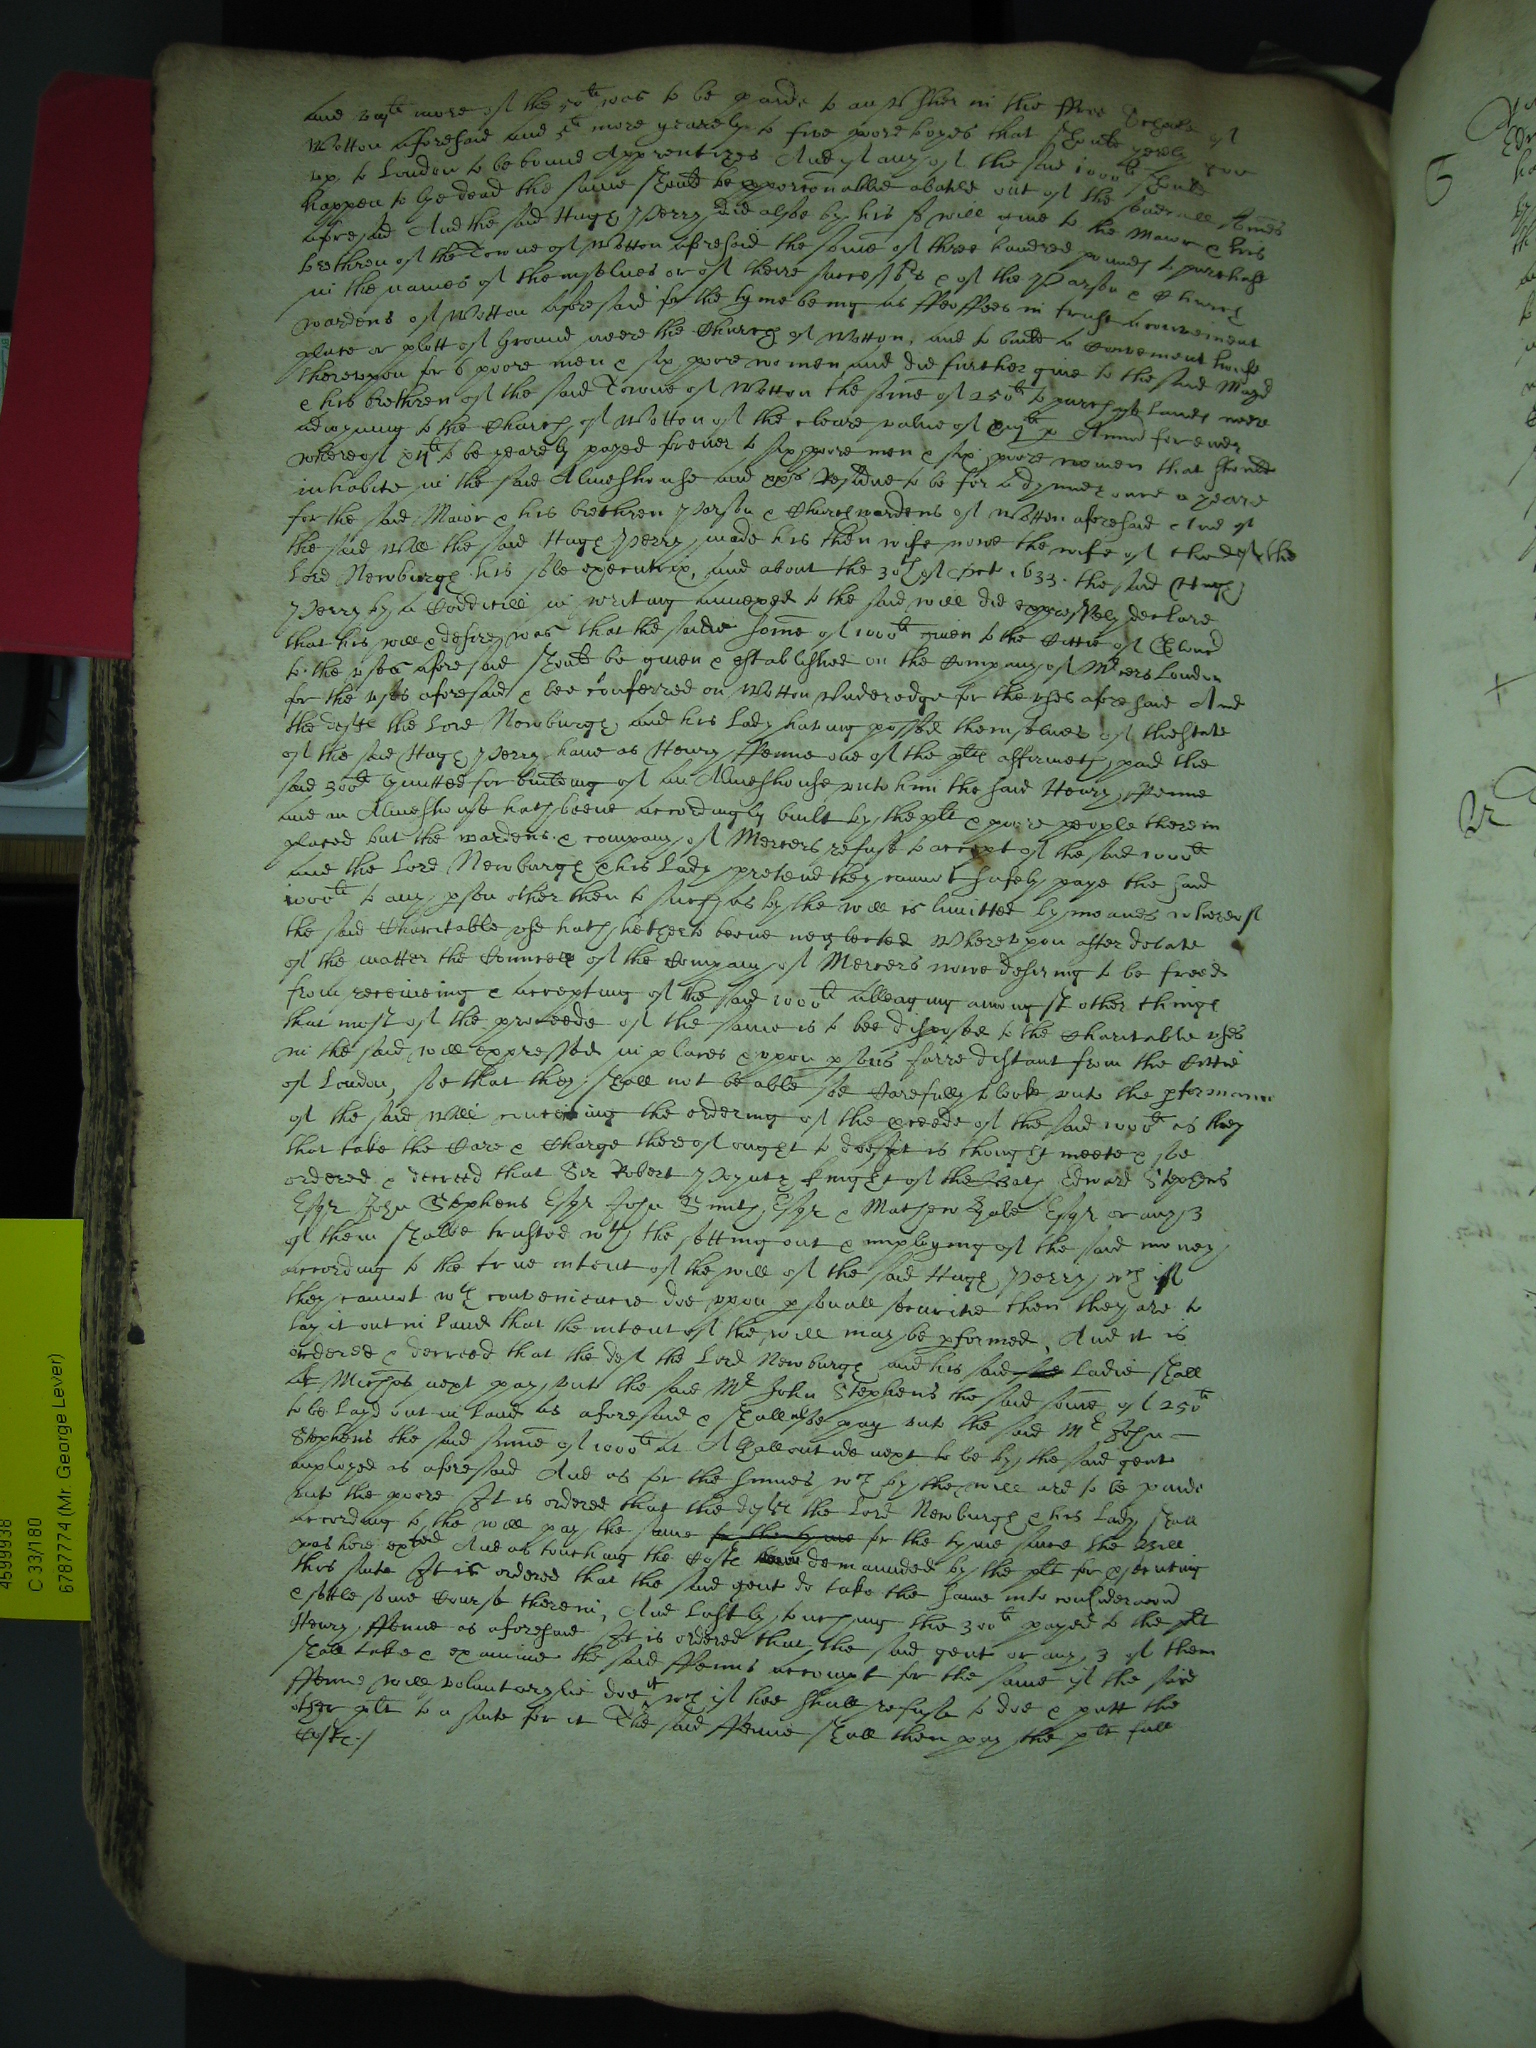 and viijli more of the 50li was to be paide to an Vsher in the ffree Schoole of
Wotton aforesaid and 5li more yearely to five poore boyes that should yerely goe
vp to London to be bound Apprentizes And yf any of the said 1000li should
happen to be dead the same should be proporconablie abated out of the seuerall somes
aforesaid And the said Hugh Perry did alsoe by his sd will giue to the Maior & his
brethren of the Towne of Wotton aforesaid the some of three hundred pounds to purchase
in the names of themselues or of theire successors & of the Parson & Church
wardens of Wotton aforesaid for the tyme being as ffeoffees in trust a convenient
place or plott of Ground neere the Church of Wotton, and to build a Convenient house
therevpon for 6 poore men & six poore women and did further giue to the said Mayor
& his brethren of the said Towne of Wotton the some of 250li to purchase lands neere
adioyning to the Church of Wotton of the cleare value of per Annu for ever
whereof to be yearely payed for euer to six poore men & six poore women that should
inhabite in the said Almeshouse and xxs residue to be for a dynner once a yeare
for the said Maior & his brethren Parson & Churchwardens of Wotton aforesaid And of
the said Will the said Hugh Perry made his then wife nowe the wife of the deft the
Lord Newburgh his sole executrix, and about the 30th of Oct 1633 the said Hugh
Perry by a Coddicill in writing annexed to the said will did expressely declare
that his will & desire was that the saide some of 1000li giuen to the Cittie of
to the vses aforesaid should be giuen & established on the Company of Mercers London
for the vses aforesaid & bee conferred on Wotton Vnderedge for the vses aforesaid And
the deft the Lord Newburgh and his Lady having possed themselues of thestate
of the said Hugh Perry haue as Henry ffenne one of the plts affirmeth, paid the
said 300li limitted for building of an Almeshouse vnto him the said Henry ffenne
and an Almeshouse hath beene accordingly built by the plt & poore people therein
placed but the wardens & company of Mercers refuse to accept of the said 1000li
and the Lord Newburgh & his Lady pretend they cannot safely paye the said
1000li to any pson other then to such as by the will is limitted by meanes whereof
the said Charitable vse hath hetherto beene neglected Wherevpon after debate
of the matter the Councell of the Company of Mercers nowe desiring to be freed
from receiueing & accepting of the said 1000li alleaging amongst other things
that most of the proceede of the same is to bee disposed to the Charitable vses
in the said will expressed in places & vpon psons farre distant from the Cittie
of London, soe that they shall not be able soe Carefully to looke vnto the pformance
of the said Will concerning the ordering of the proceede of the said 1000li as they
that take the Care & Charge thereof ought to doe It is thought meete & soe
ordered & decreed that Sir Robert Poyntz knight of the Bath Edward Stephens
Esqr John Stephens Esqr John Smith Esqr & Mathew Hale Esqr or any 3
of them shalbe trusted wth the setting out & imploying of the said money
according to the true intent of the will of the said Hugh Perry wch if
they cannot wth conveniencie doe vppon psonall securitie then they are to
lay it out in land that the intent of the will may be pformed, And it is
ordered & decreed that the deft the Lord Newburgh and his said Ladie shall
att Michas next pay vnto the said Mr John Stephens the said some of 250li
to be layd out in land as aforesaid & shall alsoe pay vnto the said Mr John
Stephens the said sume of 1000li at Alhallontide next to be by the said gents
imployed as aforesaid And as for the summes wch by the will are to be paide
vnto the poore It is ordered that the defts the Lord Newburgh & his Lady shall
according to the will pay the same for the tyme for the tyme since the Bill
was here exbted And as touching the Costs demaunded by the plt for psecuting
this suite It is ordered that the said gents do take the same into consideracon
& settle some Course therein, And lastly touching the 300li payed to the plt
Henry ffenne as aforesaid It is ordered that the said gents or any 3 of them
shall take & examine the said ffenns accompt for the same if the said
ffenne will voluntarylie doe it wch if hee shall refuse to doe & putt the
other plts to a suite for it The said ffenne shall then pay the plts full
Costs./
4599938
C 33/180
6787774 (Mr. George Lever)